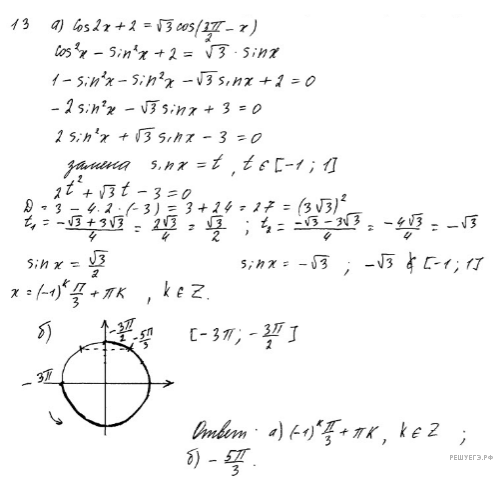 13 а) cos2x + 2 = √3 cos(3π/2 − x)
cos²x − sin²x + 2 = √3 · sinx
1 − sin²x − sin²x − √3 sinx + 2 = 0
−2 sin²x − √3 sinx + 3 = 0
2 sin²x + √3 sinx − 3 = 0
замена sinx = t, t ∈ [−1; 1]
2t² + √3 t − 3 = 0
D = 3 − 4·2·(−3) = 3 + 24 = 27 = (3√3)²
t₁ = (−√3 + 3√3)/4 = 2√3/4 = √3/2 ; t₂ = (−√3 − 3√3)/4 = −4√3/4 = −√3
sinx = √3/2 sinx = −√3 ; −√3 ∉ [−1; 1]
x = (−1)ᵏ π/3 + πk, k ∈ Z.
б) −3π/2 −5π/3 [−3π; −3π/2]
−3π
Ответ: а) (−1)ᵏ π/3 + πk, k ∈ Z ;
б) −5π/3.
РЕШУЕГЭ.РФ